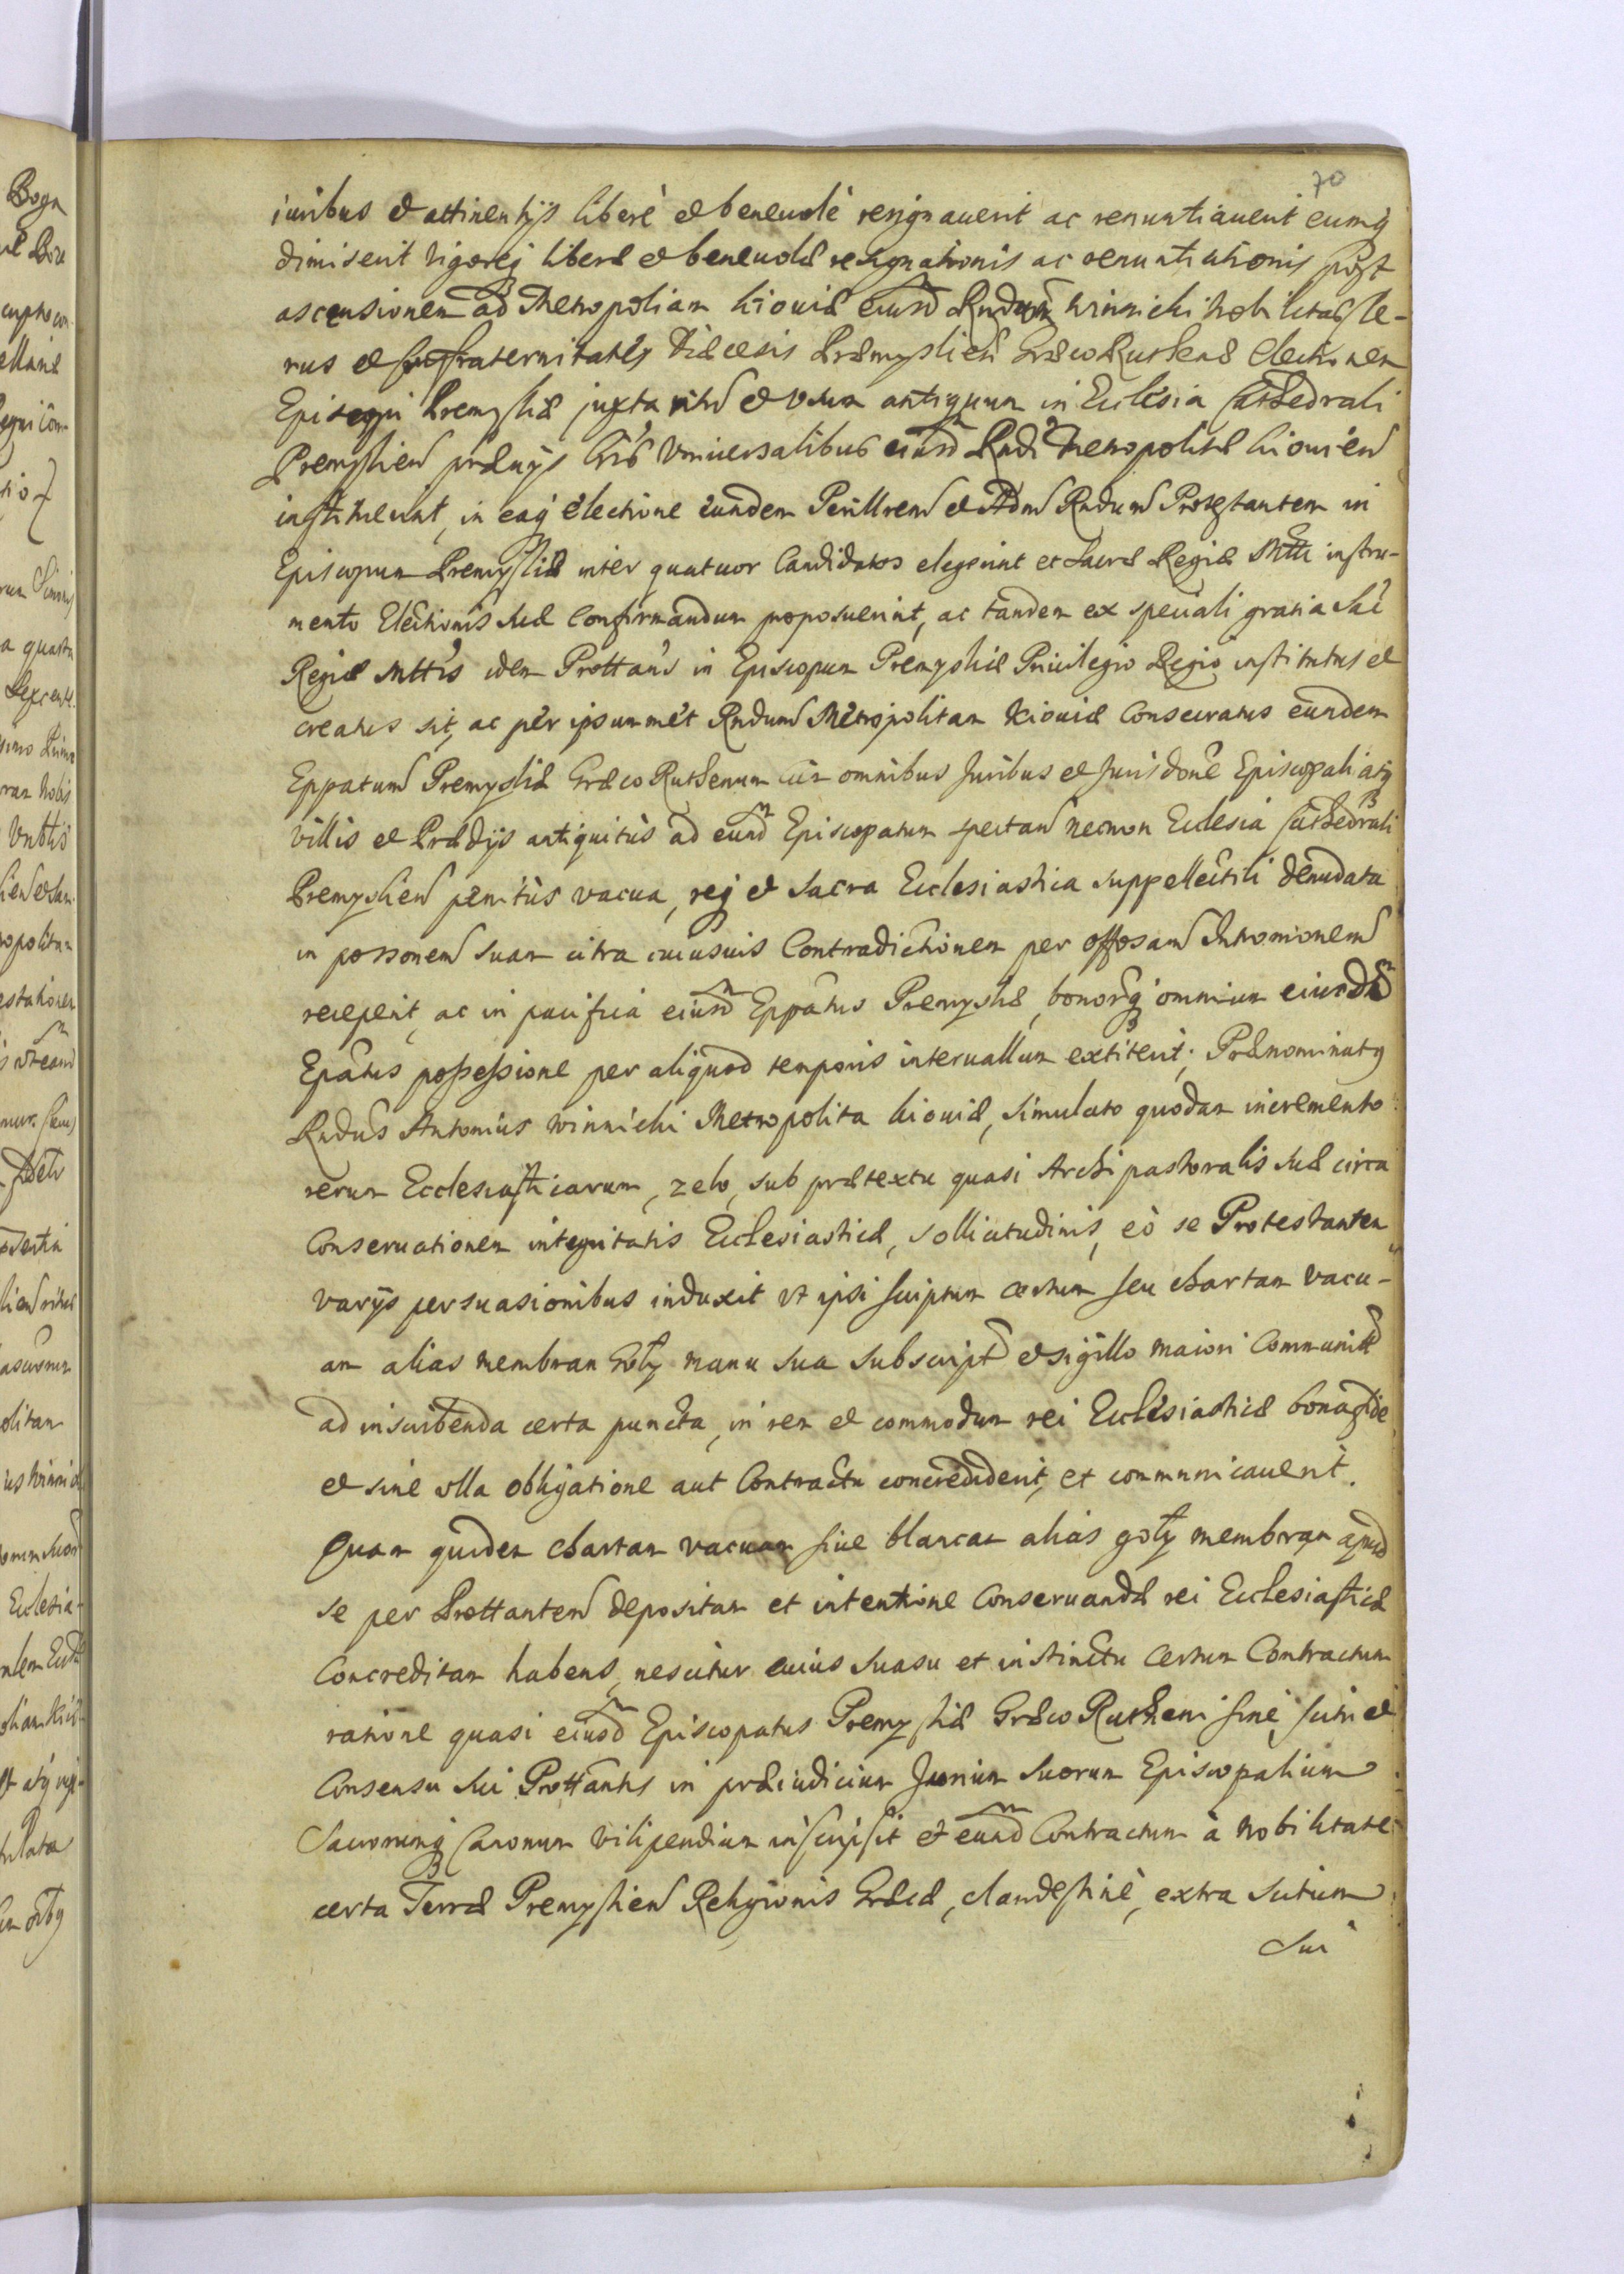 70
iuribus et attinentijs liberè et beneuolè resignauerit ac renuntiauerit eumq
dimiserit vigoreq liberæ et beneuolæ resignationis ac renuntiationis post
ascensionem ad Metropoliam Kiouiæ eiusd Rndum Winnicki Nobilitas Cle-
rus et Confraternitates Diæcesis Præmyslien Græco Ruthenæ Electionem
Episcopi Premysliæ juxta ritũ et vsum antiquum in Ecclesia Cathedrali
Premyslien præuijs Lrıs Vniuersalibus eiusd Rndi Metropolitæ Kiouien
instituerint, in eaq electione eundem Perillrem et Adm Rndum Protestantem in
Episcopum Premysliæ inter quatuor Candidatos elegerint et Sacræ Regiæ Mtti instru-
mento Electionis suæ Confirmandum proposuerint, ac tandem ex speciali gratia Sac
Regiæ Mttis idem Prottans in Episcopum Premysliæ Priuilegio Regio institutus et
creatus sit, ac per ipsummet Rndum Metropolitam Kiouiæ Consecratus eundem
Eppatum Premysliæ Græco Ruthenum cum omnibus Juribus et Jurisdone Episcopali atq
villis et Prædijs antiquitus ad eund Episcopatum spectan necnon Ecclesia Cathedrali
Premyslien penitùs vacua, req et sacra Ecclesiastica suppellectili denudata
in possonem suam citra cuiusuis Contradictionem per offosam Intromonem
receperit, ac in pacifica eiusd Eppatus Premysliæ, bonorq omnium eiusd
Epatus possessione per aliquod temporis interuallum extiterit; Prænominatq
Rndus Antonius Winnicki Metropolita Kiouiæ, simulato quodam incremento
rerum Ecclesiasticarum, zelo, sub prætextu quasi Archipastoralis suæ circa
Conseruationem integritatis Ecclesiasticæ, sollicitudinis, eò se Protestantem
varijs persuasionibus induxit vt ipsi scriptum certum seu chartam vacu-
am alias membran Goły manu sua subscript et sigillo maiori Communit
ad inscribenda certa puncta, in rem et commodum rei Ecclesiasticæ bona fide
et sine vlla obligatione aut Contractu concrediderit, et communicauerit.
Quam quidem chartam vacuam siue blancam alias goły membran apud
se per Prottantem depositam et intentione Conseruandæ rei Ecclesiasticæ
Concreditam habens, nescitur cuius suasu et instinctu Certum Contractum
ratione quasi eiusd Episcopatus Premysliæ Græco Rutheni sine scitu et
Consensu sui Prottantis in præiudicium Jurium suorum Episcopalium
Sacrorumq Canonum vilipendium inscripsit et eund Contractum à Nobilitate
certa Terræ Premyslien Religionis Græcæ, clandestinè, extra scitum
sui